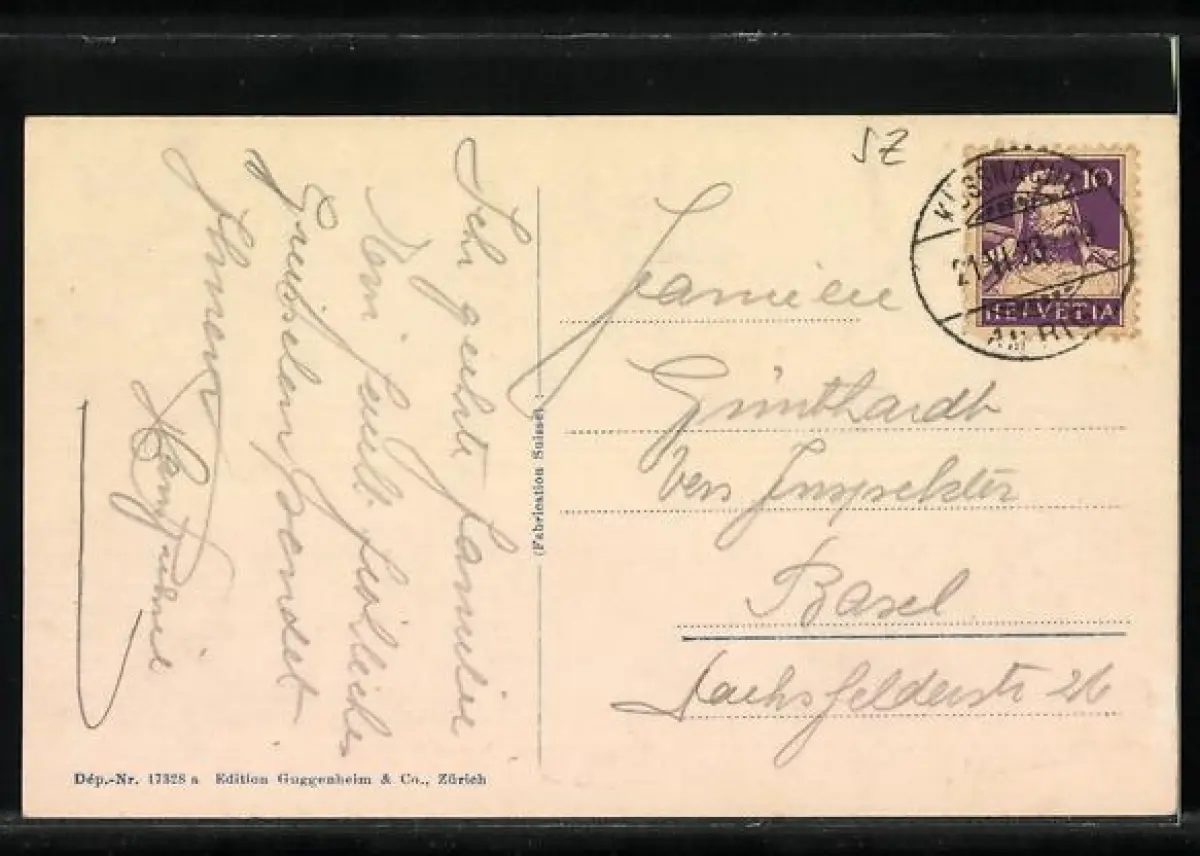 Sehr geehrte Familie
Vom
Grüsselein sendet
Ihnen
Dép.-Nr. 17328 a Edition Guggenheim & Co., Zürich
(Fabrication Suisse)
SZ
KÜSSNACHT
21.VI.33
AM RIGI
10
HELVETIA
Familie
Günthardt
Vers Inspektor
Basel
Sachsfelderstr 26